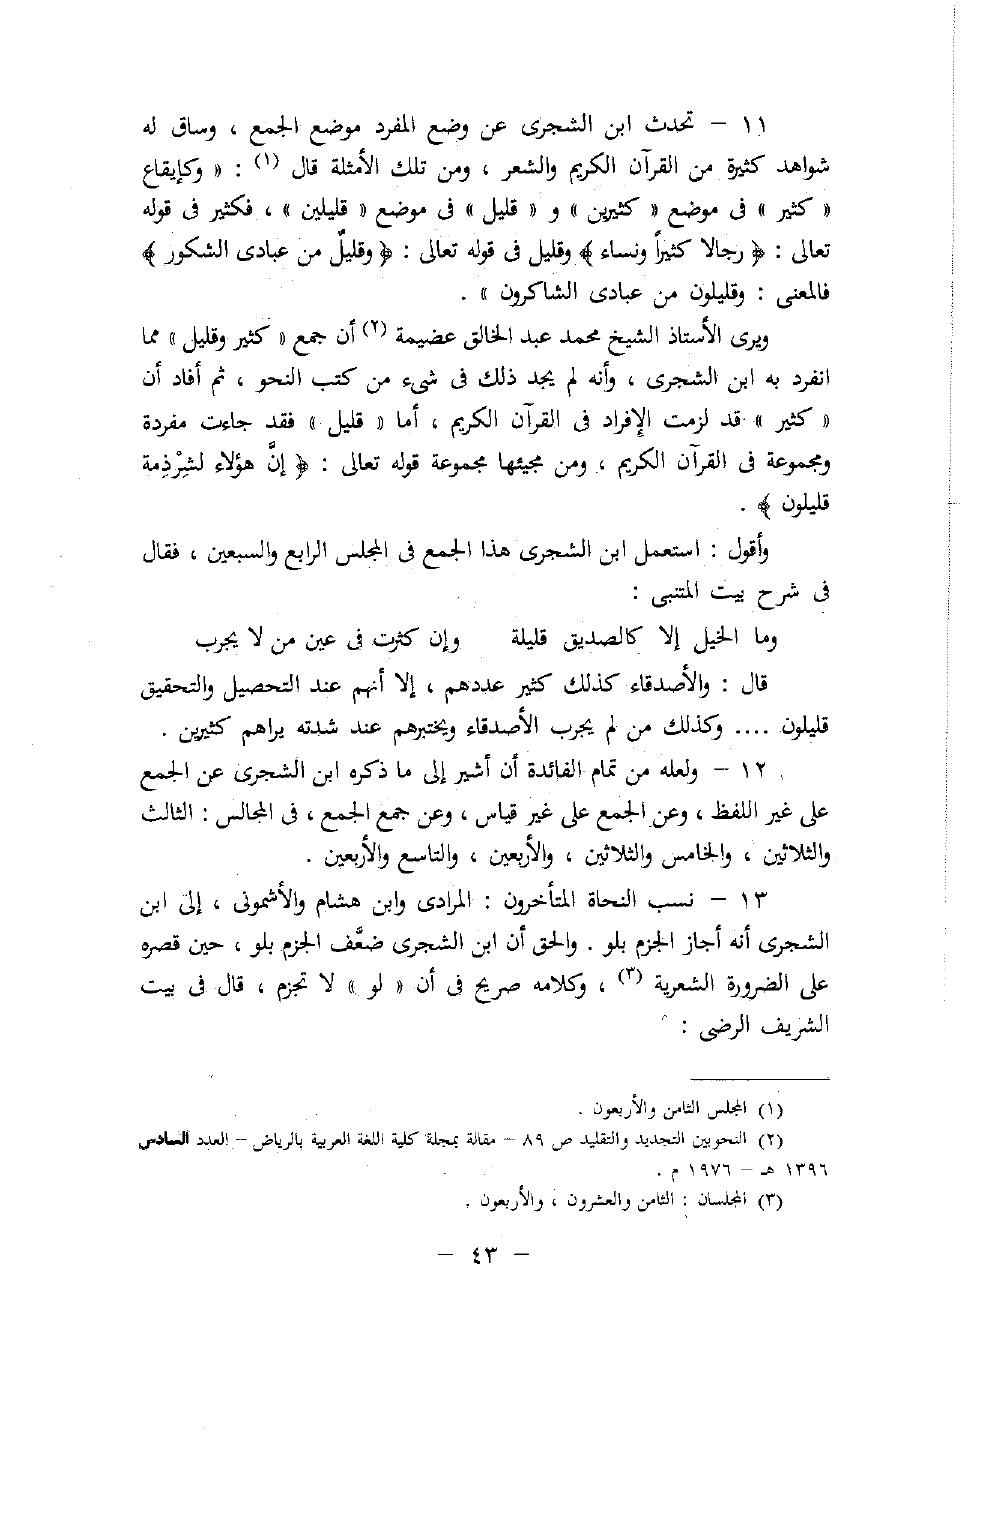 ١١ – تحدث ابن الشجرى عن وضع المفرد موضع الجمع ، وساق له
شواهد كثيرة من القرآن الكريم والشعر ، ومن تلك الأمثلة قال (١) : « وكإيقاع
« كثير » فى موضع « كثيرين » و « قليل » فى موضع « قليلين » ، فكثير فى قوله
تعالى : ﴿ رجالا كثيراً ونساء ﴾ وقليل فى قوله تعالى : ﴿ وقليلٌ من عبادى الشكور ﴾
فالمعنى : وقليلون من عبادى الشاكرون » .
ويرى الأستاذ الشيخ محمد عبد الخالق عضيمة (٢) أن جمع « كثير وقليل » مما
انفرد به ابن الشجرى ، وأنه لم يجد ذلك فى شىء من كتب النحو ، ثم أفاد أن
« كثير » قد لزمت الإفراد فى القرآن الكريم ، أما « قليل » فقد جاءت مفردة
ومجموعة فى القرآن الكريم ، ومن مجيئها مجموعة قوله تعالى : ﴿ إنَّ هؤلاء لشِرْذِمة
قليلون ﴾ .
وأقول : استعمل ابن الشجرى هذا الجمع فى المجلس الرابع والسبعين ، فقال
فى شرح بيت المتنبى :
وما الخيل إلا كالصديق قليلة وإن كثرت فى عين من لا يجرب
قال : والأصدقاء كذلك كثير عددهم ، إلا أنهم عند التحصيل والتحقيق
قليلون .... وكذلك من لم يجرب الأصدقاء ويختبرهم عند شدته يراهم كثيرين .
١٢ – ولعله من تمام الفائدة أن أشير إلى ما ذكره ابن الشجرى عن الجمع
على غير اللفظ ، وعن الجمع على غير قياس ، وعن جمع الجمع ، فى المجالس : الثالث
والثلاثين ، والخامس والثلاثين ، والأربعين ، والتاسع والأربعين .
١٣ – نسب النحاة المتأخرون : المرادى وابن هشام والأشمونى ، إلى ابن
الشجرى أنه أجاز الجزم بلو . والحق أن ابن الشجرى ضعَّف الجزم بلو ، حين قصره
على الضرورة الشعرية (٣) ، وكلامه صريح فى أن « لو » لا تجزم ، قال فى بيت
الشريف الرضى :
(١) المجلس الثامن والأربعون .
(٢) النحويين التجديد والتقليد ص ٨٩ – مقالة بمجلة كلية اللغة العربية بالرياض – العدد السادس
١٣٩٦ هـ – ١٩٧٦ م .
(٣) المجلسان : الثامن والعشرون ، والأربعون .
– ٤٣ –